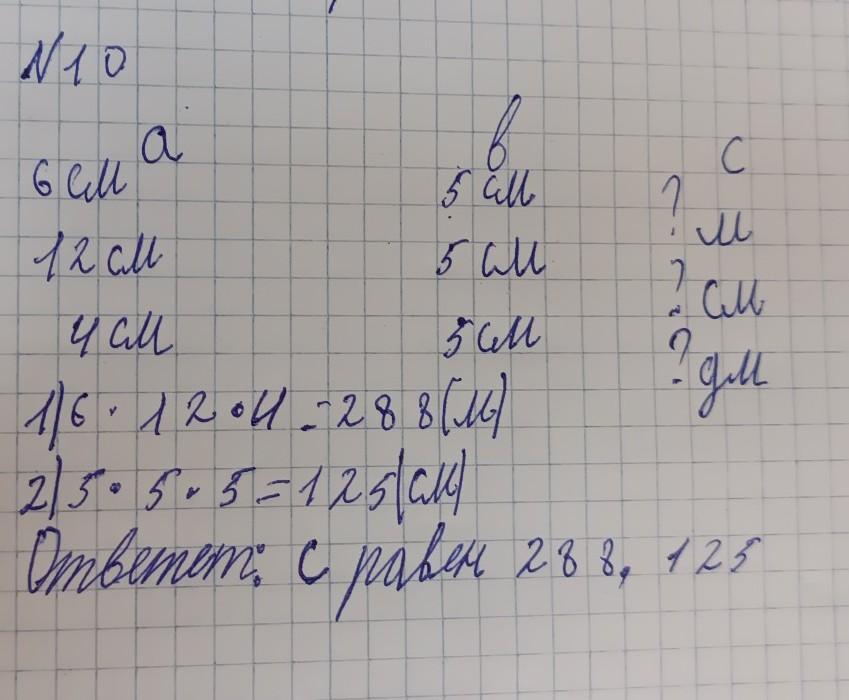 N10
а в с
6 см 5 см ? м
12 см 5 см ? см
4 см 5 см ? дм
1) 6 · 12 · 4 = 288 (м)
2) 5 · 5 · 5 = 125 (см)
Ответет: с равен 288, 125